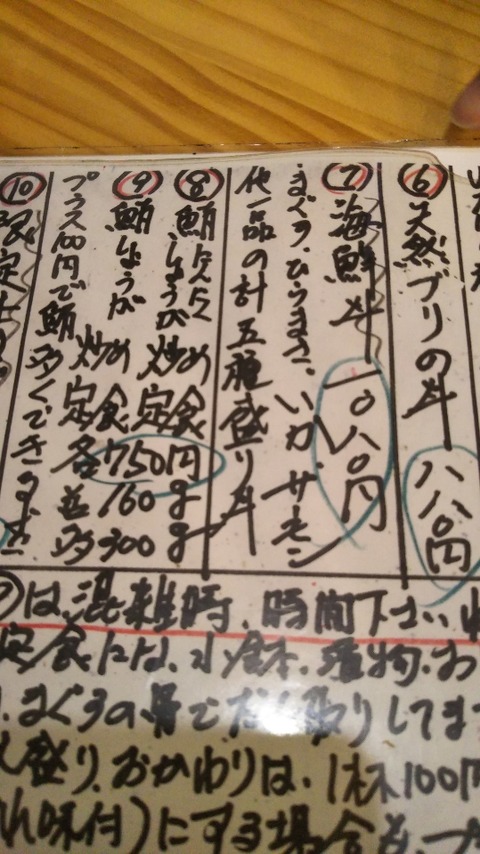 ⑥天然ブリの丼 八八〇円
⑦海鮮丼 一〇八〇円
まぐろ、ひらまさ、いか、サーモン
他一品の計五種盛り丼
⑧鮪にんにくしょうが炒め定食
⑨鮪しょうが炒め定食
各750円
並160g
多300g
プラス100円で鮪多くできます
⑩
は、混雑時、時間下さい
定食には、小鉢、漬物、お
まぐろの骨でだし取りしてます
盛り、おかわりは、1杯100円
味付)にする場合も、プ